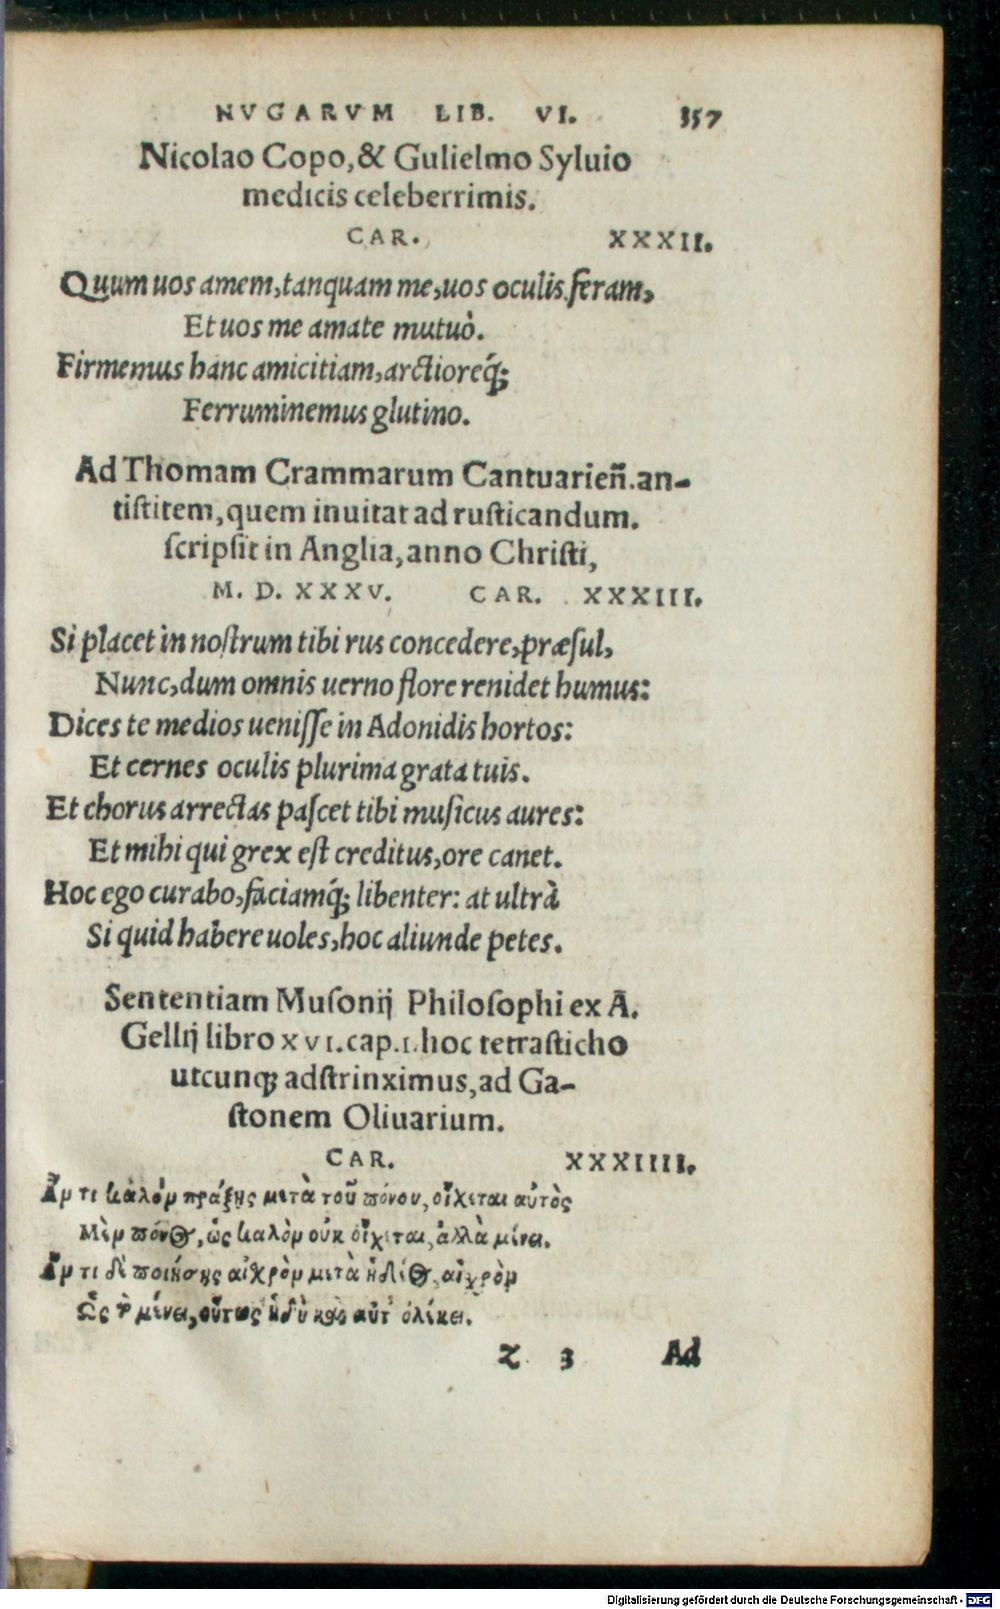 NVGARVM LIB. VI. 357
Nicolao Copo, & Gulielmo Syluio
medicis celeberrimis.
CAR. XXXII.
Quum uos amem, tanquam me, uos oculis feram,
Et uos me amate mutuò.
Firmemus hanc amicitiam, arctioreq́;
Ferruminemus glutino.
Ad Thomam Crammarum Cantuarien̄. an-
tistitem, quem inuitat ad rusticandum.
scripsit in Anglia, anno Christi,
M. D. XXXV. CAR. XXXIII.
Si placet in nostrum tibi rus concedere, præsul,
Nunc, dum omnis uerno flore renidet humus:
Dices te medios uenisse in Adonidis hortos:
Et cernes oculis plurima grata tuis.
Et chorus arrectas pascet tibi musicus aures:
Et mihi qui grex est creditus, ore canet.
Hoc ego curabo, faciamq́; libenter: at ultrà
Si quid habere uoles, hoc aliunde petes.
Sententiam Musonij Philosophi ex A.
Gellij libro XVI. cap. I. hoc tetrasticho
utcunq; adstrinximus, ad Ga-
stonem Oliuarium.
CAR. XXXIIII.
Ἄν τι καλὸν πράξῃς μετὰ τοῦ πόνου, οἴχεται αὐτὸς
Μὲν πόνος, ὡς καλὸν οὐκ οἴχεται, ἀλλὰ μένει.
Ἄν τι δὲ ποιήσῃς αἰχρὸν μετὰ ἡδέος, αἰχρὸν
Ὡς μένει, οὕτως ἡδὺ καὶ αὖτ' ὀλέκει.
Z 3 Ad
Digitalisierung gefördert durch die Deutsche Forschungsgemeinschaft - DFG